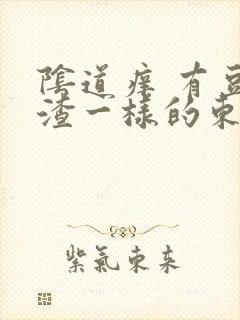 陰道痒 有豆
渣一樣的東
紫氣東来